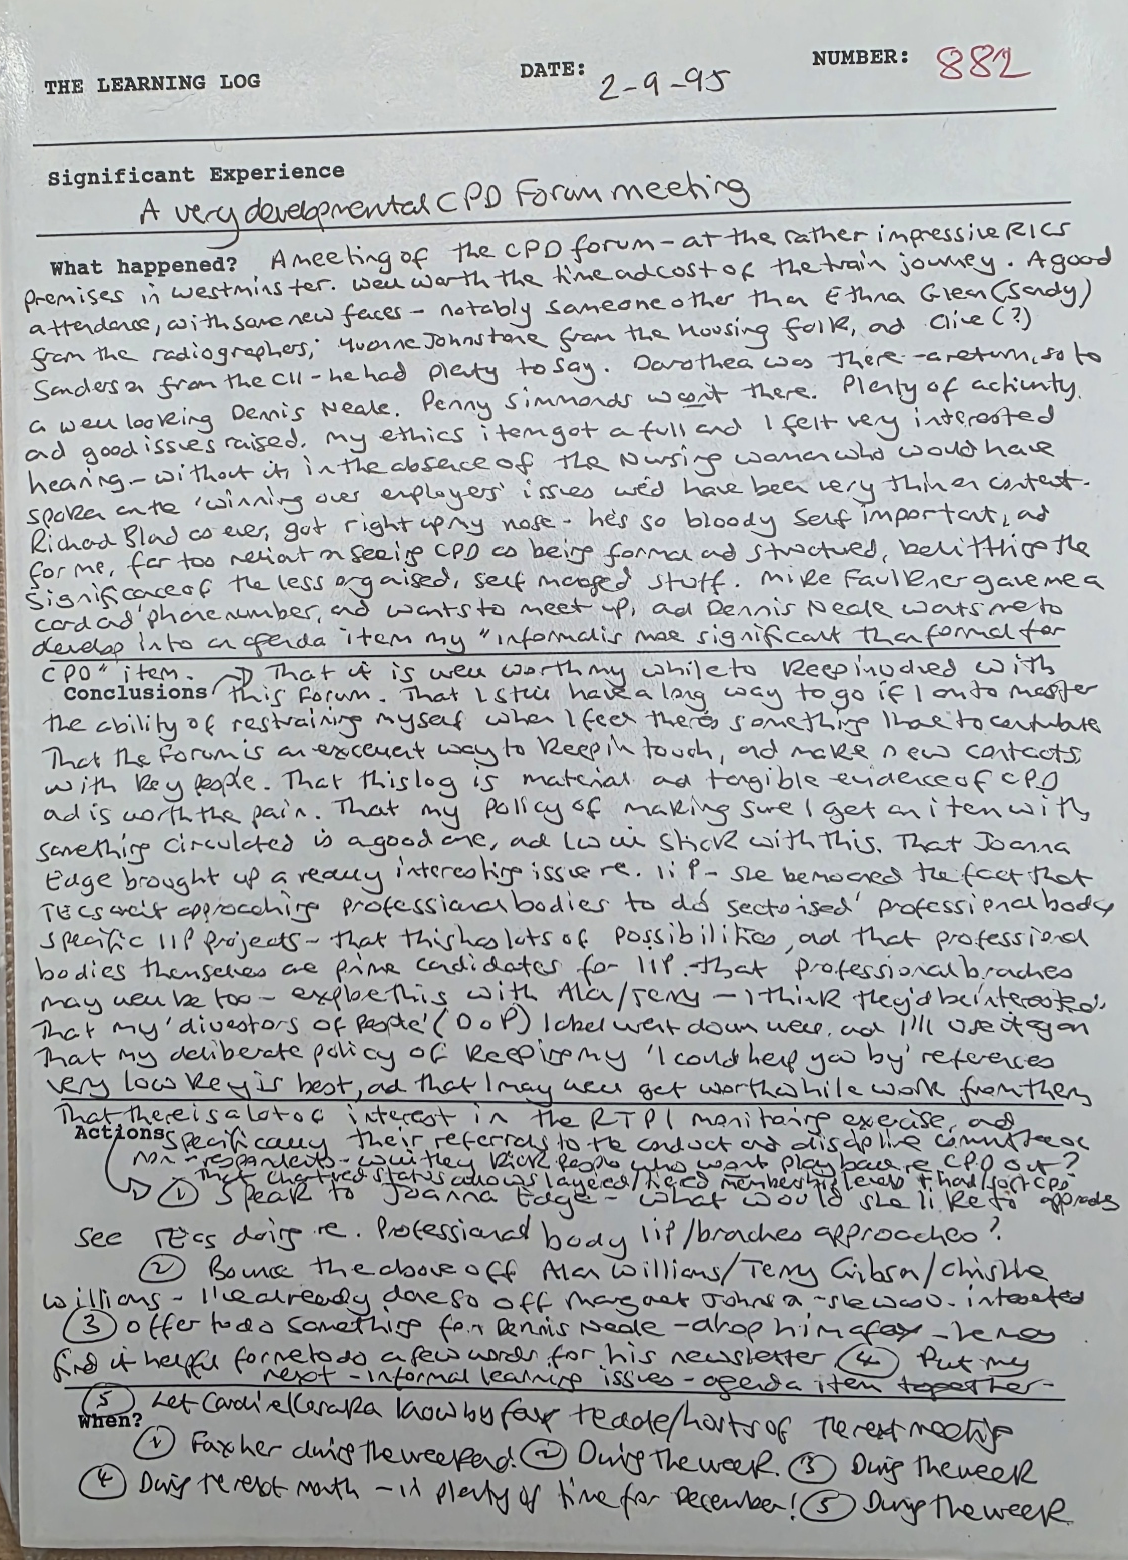 THE LEARNING LOG DATE: 2-9-95 NUMBER: 882
Significant Experience
A very developmental CPD Forum meeting
What happened? A meeting of the CPD forum - at the rather impressive RICS
premises in Westminster. Well worth the time and cost of the train journey. A good
attendance, with some new faces - notably someone other than Ethna Glean (Sandy)
from the radiographers; Yvonne Johnstone from the Housing folk, and Clive (?)
Sanderson from the CII - he had plenty to say. Dorothea was there - a return, so to
a well looking Dennis Neale. Penny Simmonds wasn't there. Plenty of activity,
and good issues raised. My ethics item got a full and I felt very interested
hearing - without it, in the absence of the Nursing woman who would have
spoken on the 'winning over employers' issues we'd have been very thin on content.
Richard Blad as ever, got right up my nose - he's so bloody self important, and
for me, far too reliant on seeing CPD as being formal and structured, belittling the
significance of the less organised, self managed stuff. Mike Faulkner gave me a
card and phone number, and wants to meet up, and Dennis Neale wants me to
develop into an agenda item my "informal is more significant than formal for
CPD" item. → That it is well worth my while to keep involved with
Conclusions this Forum. That I still have a long way to go if I am to master
the ability of restraining myself when I feel there's something I have to contribute
That the Forum is an excellent way to keep in touch, and make new contacts,
with key people. That this log is material and tangible evidence of CPD
and is worth the pain. That my policy of making sure I get an item with
something circulated is a good one, and I will stick with this. That Joanna
Edge brought up a really interesting issue re. IiP - she bemoaned the fact that
TECs aren't approaching professional bodies to do 'sectorised' professional body
specific IIP projects - that this has lots of possibilities, and that professional
bodies themselves are prime candidates for IIP. That professional branches
may well be too - explore this with Alan/Terry - I think they'd be interested.
That my 'divestors of People' (DoP) label went down well, and I'll use it again
That my deliberate policy of keeping my 'I could help you by' references
very low key is best, and that I may well get worthwhile work from them
That there is a lot of interest in the RTPI monitoring exercise, and
Actions specifically their referrals to the conduct and discipline committee of
non-respondents - will they kick people who won't play ball re CPD out?
That chartered status allows layered/tiered membership levels + hard/soft CPD
① Speak to Joanna Edge - what would she like to
see TECs doing re. Professional body IiP/branches approaches?
② Bounce the above off Alan Williams/Terry Gibson/Christine
Williams - I've already done so off Margaret Johnson - she was v. interested
③ Offer to do something for Dennis Neale - drop him a fax - he may
find it helpful for me to do a few words for his newsletter ④ Put my
next - informal learning issues - agenda item together -
⑤ Let know by fax re date/hosts of the next meeting
When?
① Fax her during the weekend! ② During the week. ③ During the week
④ During the next month - in plenty of time for December! ⑤ During the week